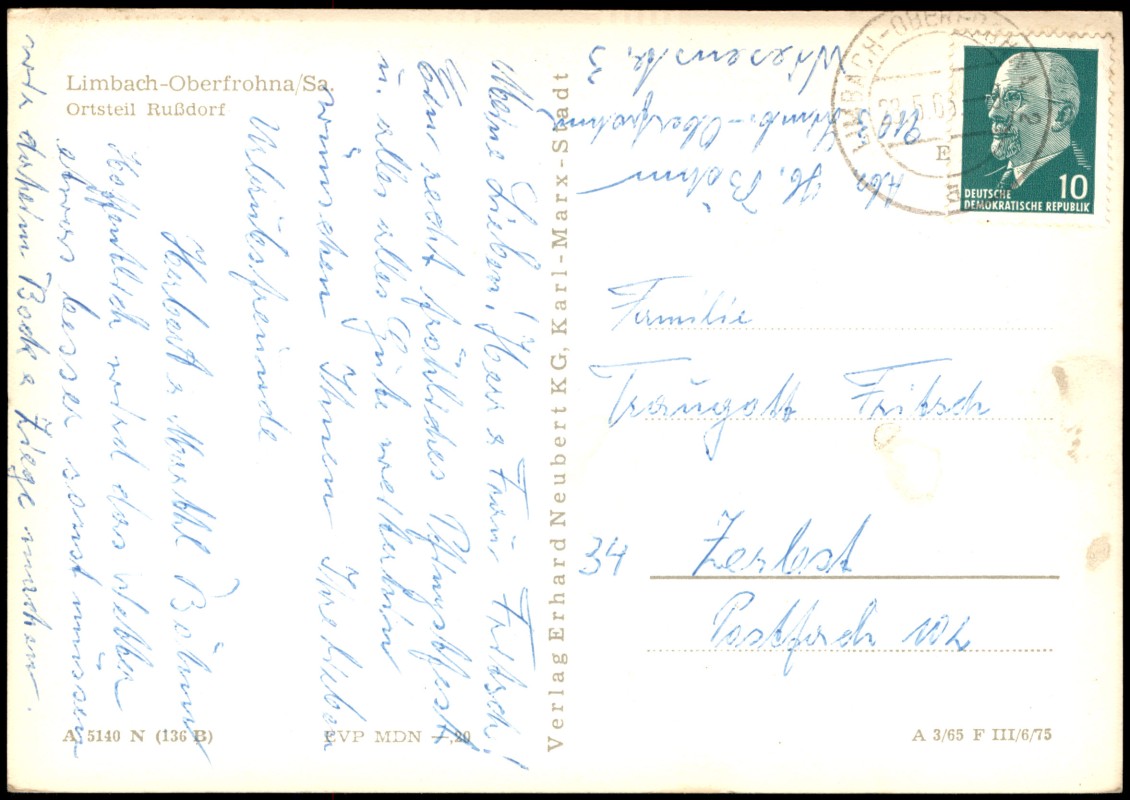 Limbach-Oberfrohna/Sa.
Ortsteil Rußdorf
Meine Lieben, Herr u Frau Fritsch!
Ein recht fröhliches Pfingstfest
u. alles alles Gute weiterhin
wünschen Ihnen Ihre lieben
Urlaubsfreunde
Herbert u Marthl Böhm
Hoffentlich wird das Wetter
etwas besser sonst müssen
wir daheim Bock u Ziege machen.
A 5140 N (136 B)
EVP MDN —,20
Verlag Erhard Neubert KG, Karl-Marx-Stadt
Abs H. Böhm
9103 Limb.-Oberfrohna
Wiesenstr. 3
LIMBACH-OBERFROHNA 2
DEUTSCHE
DEMOKRATISCHE REPUBLIK
10
Familie
Traugott Fritsch
34 Zerbst
Postfach 102
A 3/65 F III/6/75